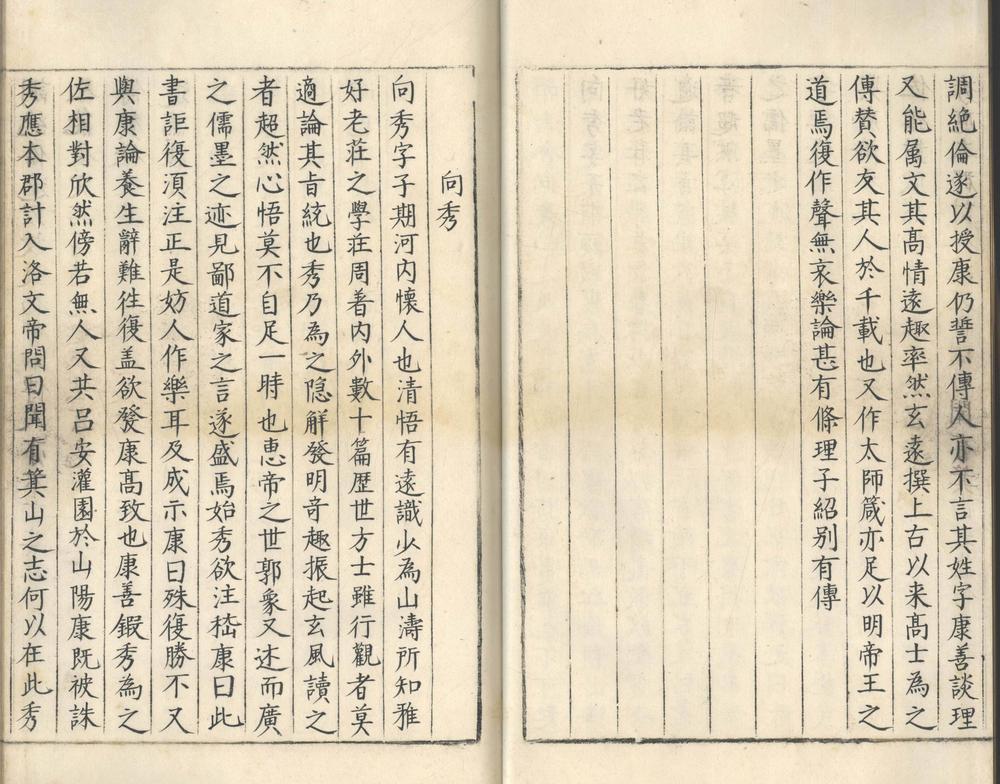 調絶倫遂以授康仍誓不傳人亦不言其姓字康善談理
又能属文其髙情遠趣率然玄遠撰上古以来髙士為之
傳賛欲友其人於千載也又作太師箴亦足以明帝王之
道焉復作聲無哀樂論甚有條理子紹别有傳
向秀
向秀字子期河内懷人也清悟有遠識少為山濤所知雅
好老莊之學莊周著内外數十篇歴世方士雖有觀者莫
適論其旨統也秀乃為之隐解發明竒趣振起玄風讀之
者超然心悟莫不自足一時也惠帝之世郭象又述而廣
之儒墨之迹見鄙道家之言遂盛焉始秀欲注嵇康曰此
書詎復湏注正是妨人作樂耳及成示康曰殊復勝不又
與康論養生辭難往復盖欲發康髙致也康善鍜秀為之
佐相對欣然傍若無人又共吕安灌園於山陽康既被誅
秀應本郡計入洛文帝問曰聞有箕山之志何以在此秀